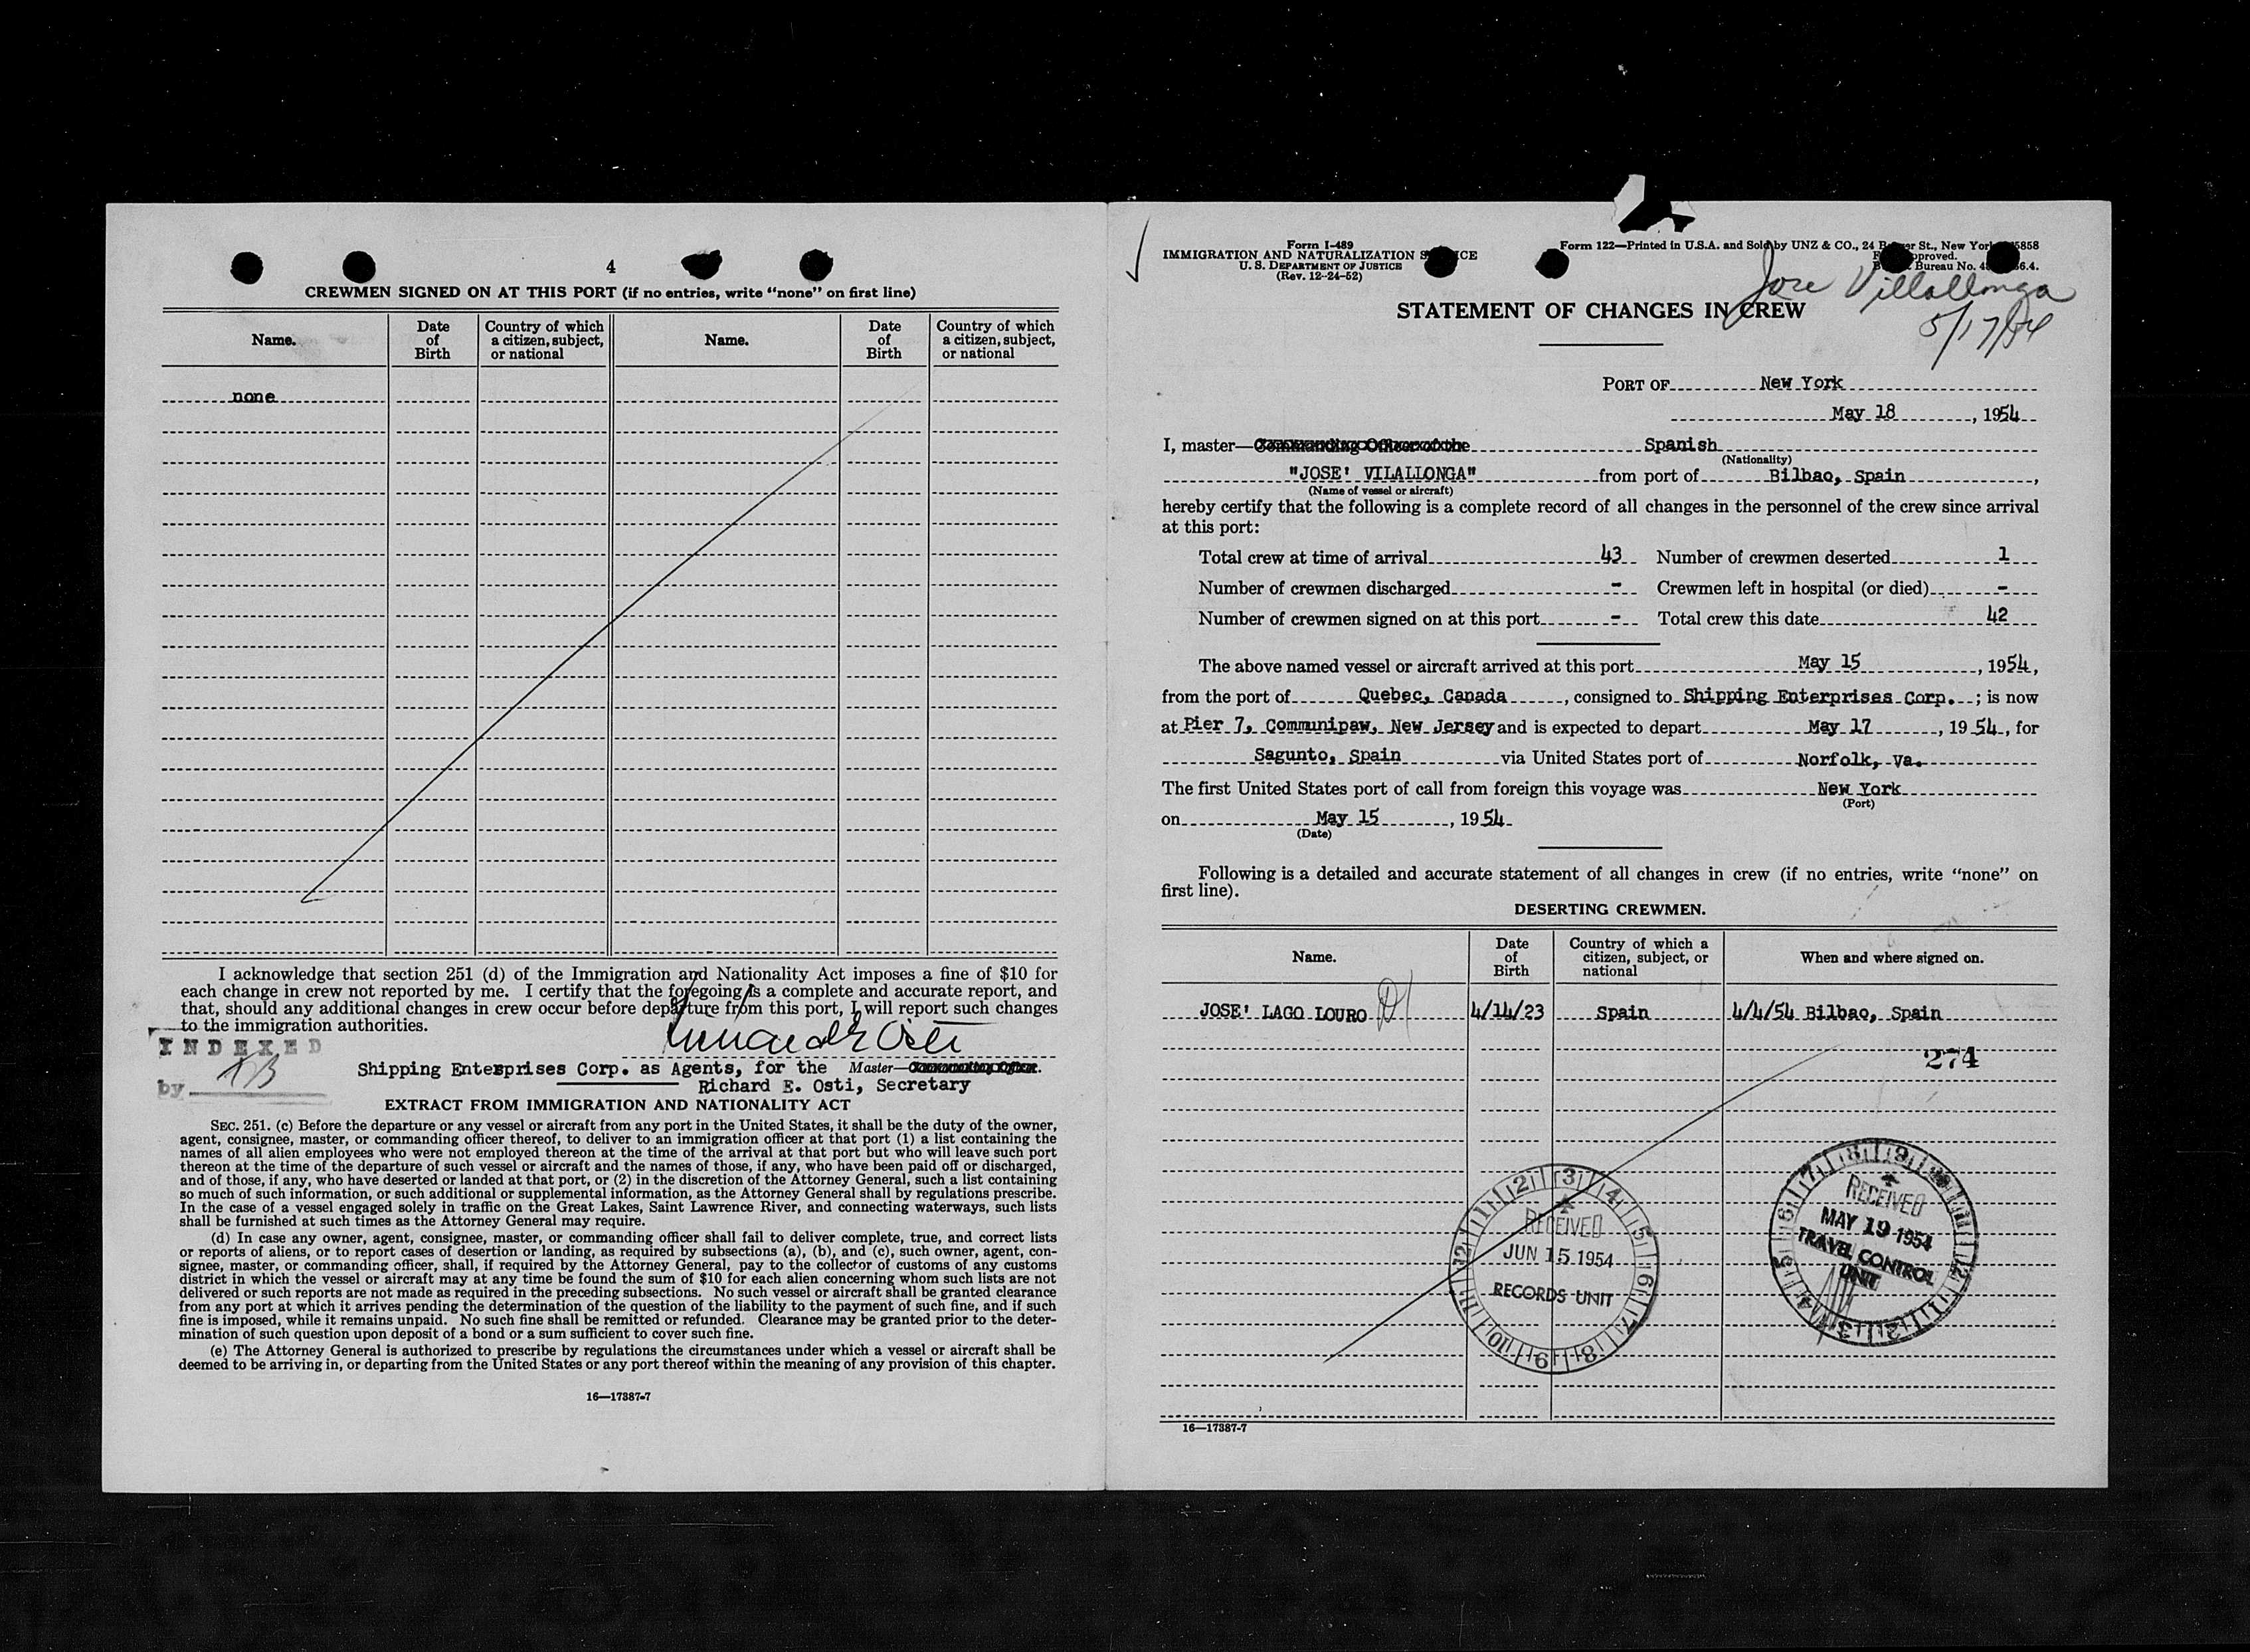 4
CREWMEN SIGNED ON AT THIS PORT (if no entries, write “none” on first line)
Name. Date of Birth Country of which a citizen, subject, or national Name. Date of Birth Country of which a citizen, subject, or national
none
I acknowledge that section 251 (d) of the Immigration and Nationality Act imposes a fine of $10 for
each change in crew not reported by me. I certify that the foregoing is a complete and accurate report, and
that, should any additional changes in crew occur before departure from this port, I will report such changes
to the immigration authorities.
INDEXED
by
Shipping Enterprises Corp. as Agents, for the Master—
Richard E. Osti, Secretary
EXTRACT FROM IMMIGRATION AND NATIONALITY ACT
SEC. 251. (c) Before the departure or any vessel or aircraft from any port in the United States, it shall be the duty of the owner,
agent, consignee, master, or commanding officer thereof, to deliver to an immigration officer at that port (1) a list containing the
names of all alien employees who were not employed thereon at the time of the arrival at that port but who will leave such port
thereon at the time of the departure of such vessel or aircraft and the names of those, if any, who have been paid off or discharged,
and of those, if any, who have deserted or landed at that port, or (2) in the discretion of the Attorney General, such a list containing
so much of such information, or such additional or supplemental information, as the Attorney General shall by regulations prescribe.
In the case of a vessel engaged solely in traffic on the Great Lakes, Saint Lawrence River, and connecting waterways, such lists
shall be furnished at such times as the Attorney General may require.
(d) In case any owner, agent, consignee, master, or commanding officer shall fail to deliver complete, true, and correct lists
or reports of aliens, or to report cases of desertion or landing, as required by subsections (a), (b), and (c), such owner, agent, con-
signee, master, or commanding officer, shall, if required by the Attorney General, pay to the collector of customs of any customs
district in which the vessel or aircraft may at any time be found the sum of $10 for each alien concerning whom such lists are not
delivered or such reports are not made as required in the preceding subsections. No such vessel or aircraft shall be granted clearance
from any port at which it arrives pending the determination of the question of the liability to the payment of such fine, and if such
fine is imposed, while it remains unpaid. No such fine shall be remitted or refunded. Clearance may be granted prior to the deter-
mination of such question upon deposit of a bond or a sum sufficient to cover such fine.
(e) The Attorney General is authorized to prescribe by regulations the circumstances under which a vessel or aircraft shall be
deemed to be arriving in, or departing from the United States or any port thereof within the meaning of any provision of this chapter.
16—17387-7
Form I-489
IMMIGRATION AND NATURALIZATION
U. S. DEPARTMENT OF JUSTICE
(Rev. 12-24-52)
Form 122—Printed in U.S.A. and Sold by UNZ & CO., 24 St., New York
Bureau No.
Jose Villallonga
5/17/54
STATEMENT OF CHANGES IN CREW
PORT OF New York
May 18, 1954
I, master—Commanding Officer of the Spanish
(Nationality)
"JOSE' VILALLONGA" from port of Bilbao, Spain,
(Name of vessel or aircraft)
hereby certify that the following is a complete record of all changes in the personnel of the crew since arrival
at this port:
Total crew at time of arrival 43 Number of crewmen deserted 1
Number of crewmen discharged - Crewmen left in hospital (or died) -
Number of crewmen signed on at this port - Total crew this date 42
The above named vessel or aircraft arrived at this port May 15, 1954,
from the port of Quebec, Canada, consigned to Shipping Enterprises Corp.; is now
at Pier 7, Communipaw, New Jersey and is expected to depart May 17, 1954, for
Sagunto, Spain via United States port of Norfolk, Va.
The first United States port of call from foreign this voyage was New York
(Port)
on May 15, 1954
(Date)
Following is a detailed and accurate statement of all changes in crew (if no entries, write “none” on
first line).
DESERTING CREWMEN.
Name. Date of Birth Country of which a citizen, subject, or national When and where signed on.
JOSE' LAGO LOURO 4/14/23 Spain 4/4/54 Bilbao, Spain
274
RECEIVED
JUN 15 1954
RECORDS UNIT
RECEIVED
MAY 19 1954
TRAVEL CONTROL
UNIT
16—17387-7